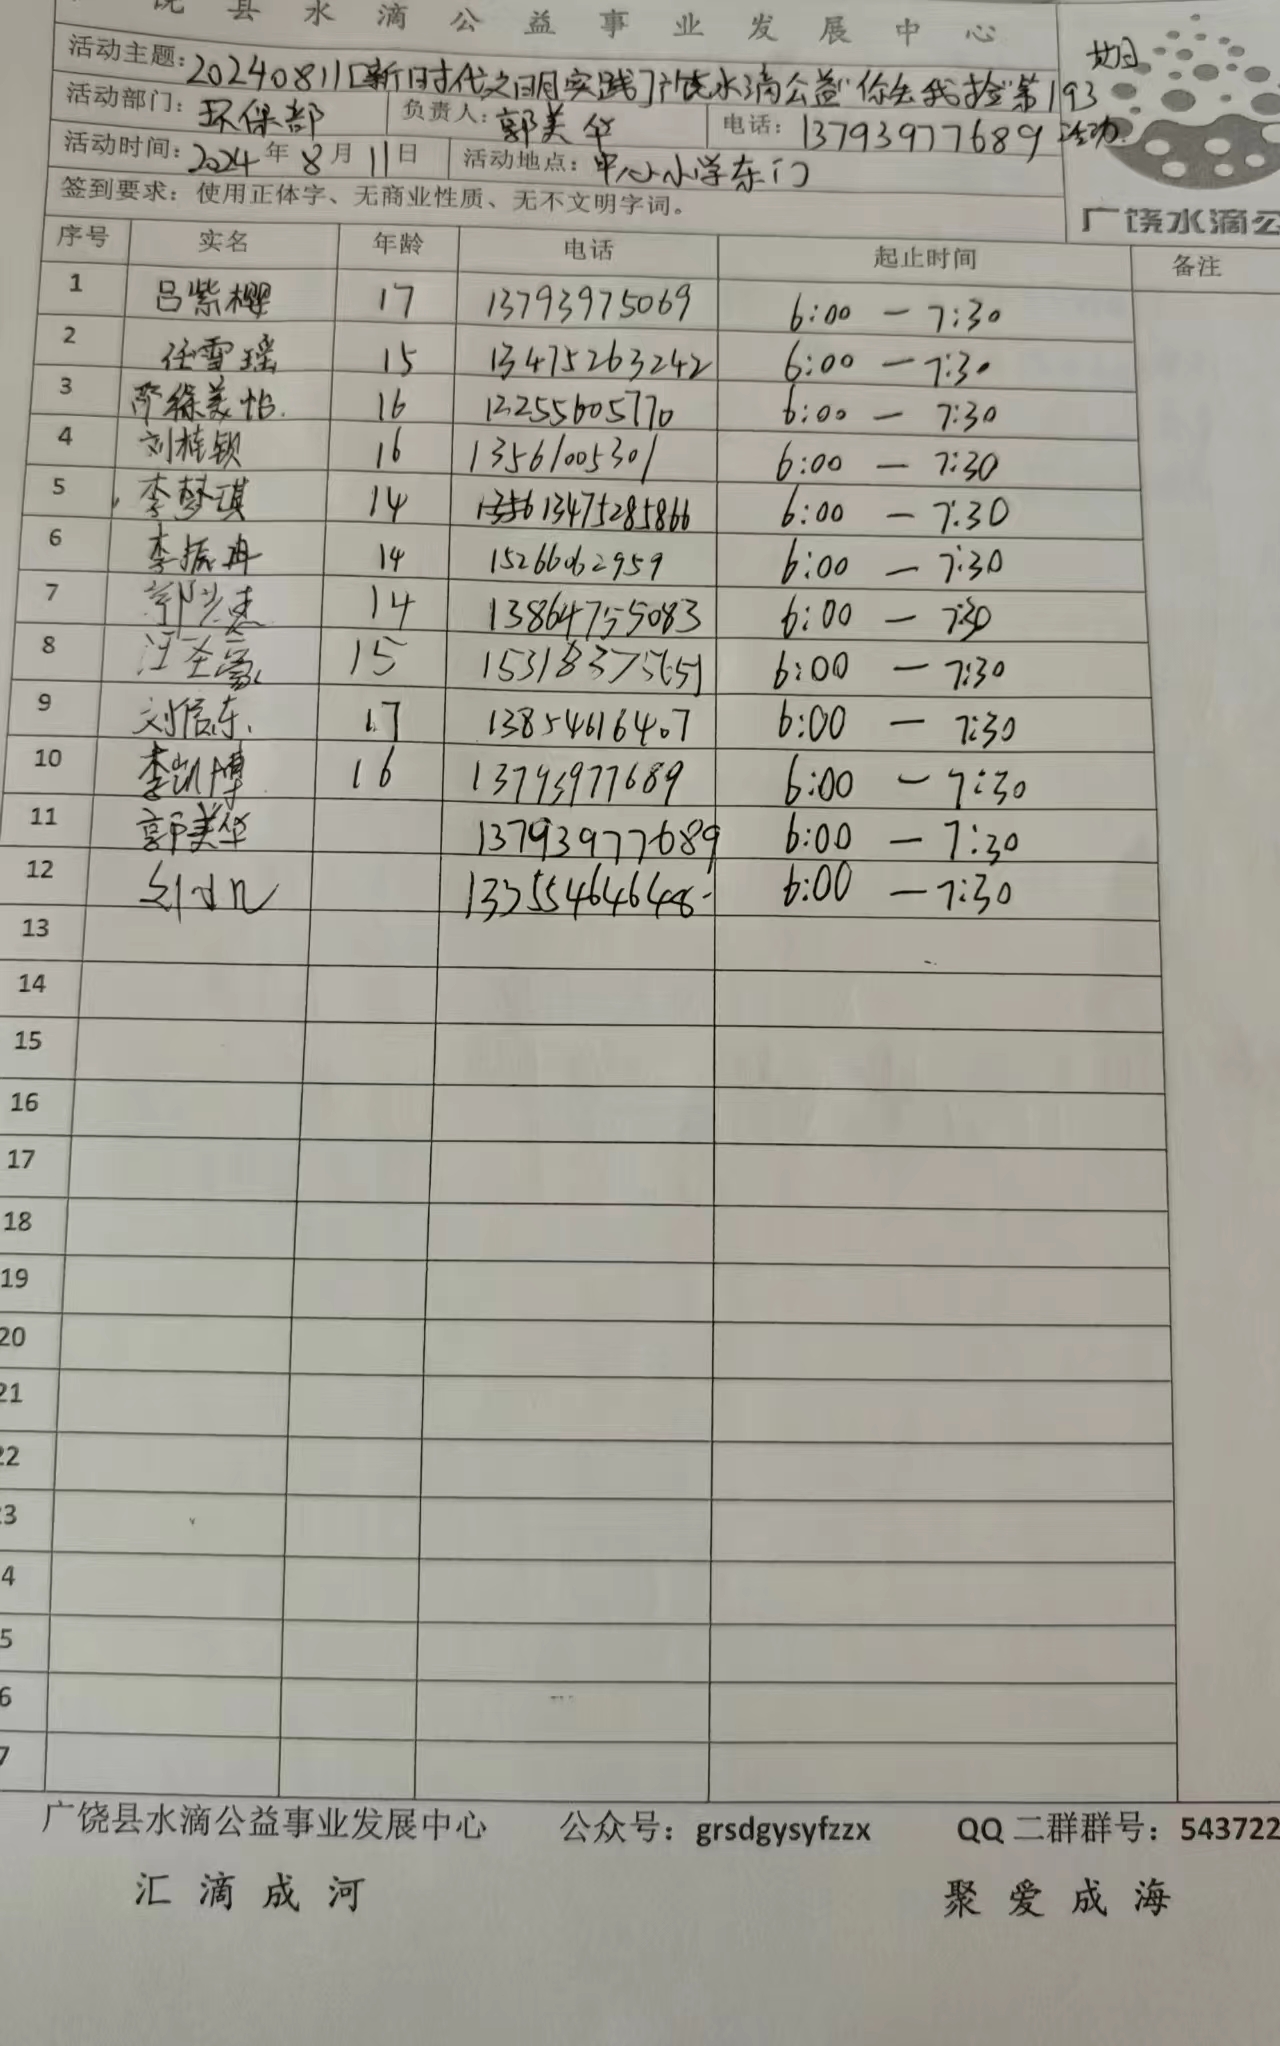 饶县水滴公益事业发展中心
活动主题：20240811[新时代文明实践]广饶水滴公益"你丢我捡"第193期活动
活动部门：环保部 负责人：郭美华 电话：13793977689
活动时间：2024年8月11日 活动地点：中心小学东门
签到要求：使用正体字、无商业性质、无不文明字词。
广饶水滴公
序号 实名 年龄 电话 起止时间 备注
1 吕紫樱 17 13793975069 6:00 — 7:30
2 任雪瑶 15 13475263242 6:00 — 7:30
3 16 12255605770 6:00 — 7:30
4 刘桂钡 16 13561005301 6:00 — 7:30
5 李梦琪 14 13475285866 6:00 — 7:30
6 李振冉 14 15266062959 6:00 — 7:30
7 14 13864755083 6:00 — 7:30
8 汪圣豪 15 6:00 — 7:30
9 刘信东 17 13854616407 6:00 — 7:30
10 李凯博 16 13793977689 6:00 — 7:30
11 郭美华 13793977689 6:00 — 7:30
12 13355464648 6:00 — 7:30
13
14
15
16
17
18
19
20
21
22
3
4
5
6
7
广饶县水滴公益事业发展中心 公众号：grsdgysyfzzx QQ 二群群号：543722
汇滴成河 聚爱成海